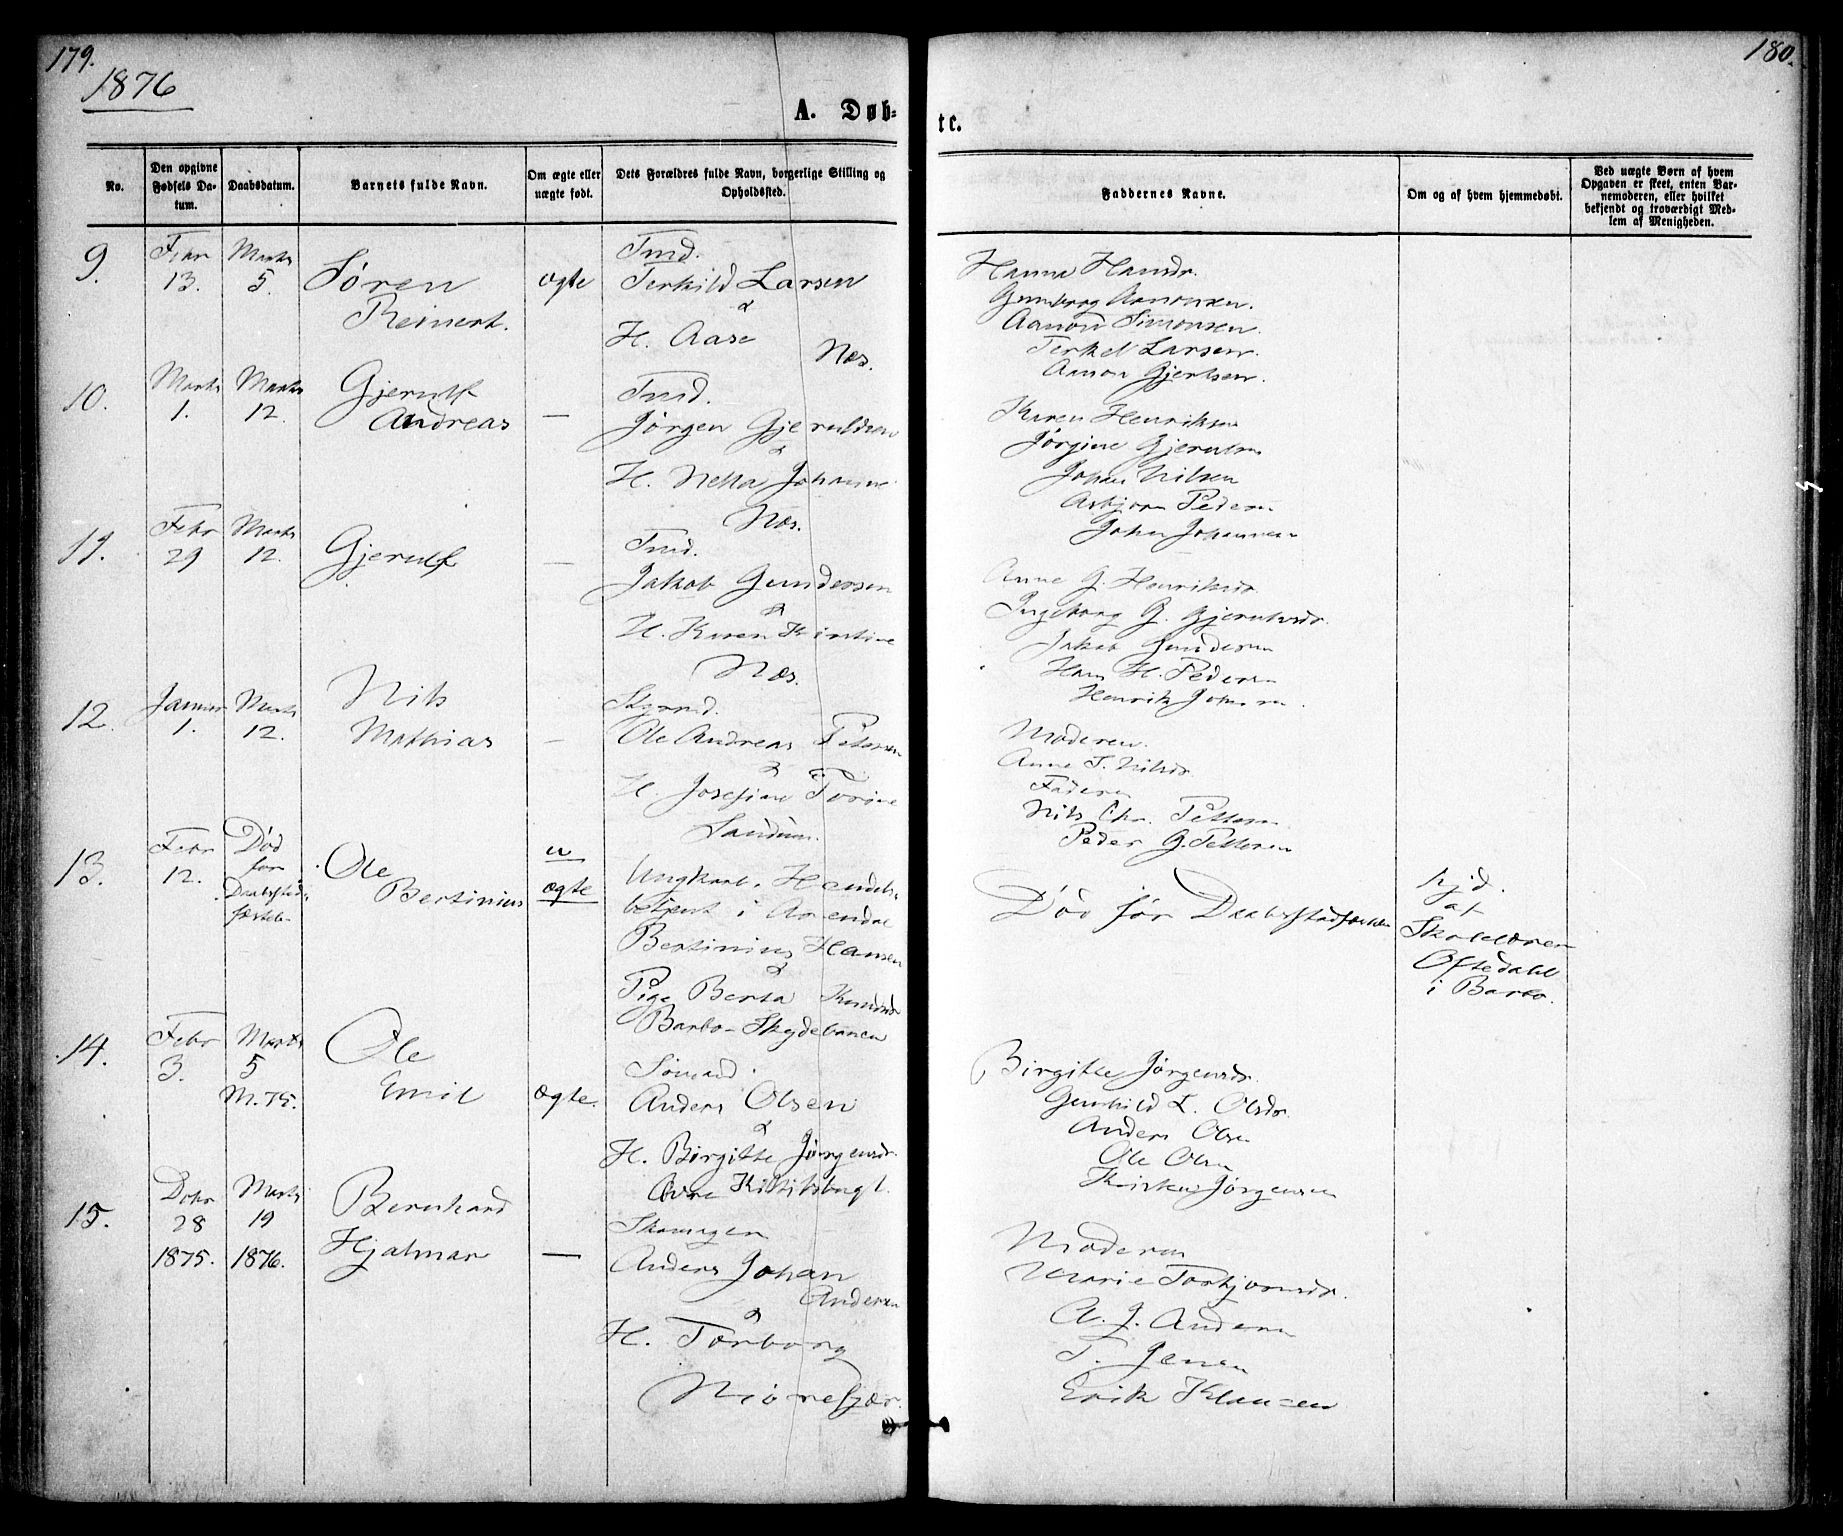 179.
180.
1876
A. Døb-
te.
No.
Den opgivne Fødsels Da-
tum.
Daabsdatum.
Barnets fulde Navn.
Om ægte eller
uægte født.
Dets Forældres fulde Navn, borgerlige Stilling og
Opholdssted.
Faddernes Navne.
Om og af hvem hjemmedøbt.
Ved uægte Børn af hvem
Opgaven er skeet, enten Bar-
nemoderen, eller hvilket
bekjendt og troværdigt Med-
lem af Menigheden.
9.
Febr
13.
Marts
5.
Søren
Reinert.
ægte
Tmd.
Terkild Larsen
&
H. Aase
Næs.
Hanna Hansdr.
Gunborg Aanonsen.
Aanon Simonsen.
Terkel Larsen.
Aanon Gjertsen.
10.
Marts
1.
Marts
12.
Gjerulf
Andreas
—
Tmd.
Jørgen Gjeruldsen
&
H. Netta Johanne
Næs.
Karen Henriksen
Jørgine Gjerulsen
Johan Nilsen
Asbjørn Pedersen
Johan Johannesen
11.
Febr
29
Marts
12.
Gjerulf
—
Tmd.
Jakob Gundersen
&
H. Karen Kirstine
Næs.
Anne G. Henriksdr.
Ingeborg G. Gjerulsdr.
Jakob Gundersen
Hans H. Pedersen
Henrik Johnsen.
12.
Januar
1.
Marts
12.
Nils
Mathias
—
Ole Andreas Pettersen
&
H. Josefine Torine
Sandum.
Moderen.
Anne T. Nilsdr.
Faderen
Nils Chr. Pettersen
Peder G. Pettersen
13.
Febr
12.
Død
før
Daabsstad-
fæstels
Ole
Bertinius
u
ægte
Ungkarl. Handels-
betjent i Arendal
Bertinius Hansen
&
Pige Berta Knudsdr
Barbo-Skydebanen
Død før Daabsstadfæstelsen
hjd.
af
Skolelærer
Oftedahl
i Barbo.
14.
Febr
3.
Marts
5
M. 75.
Ole
Emil
Ægte.
Sømand.
Anders Olsen
&
H. Birgitte Jørgensdr.
Birgitte Jørgensdr.
Gunhild L. Olsdr.
Anders Olsen
Ole Olsen
Kirsten Jørgensen
15.
Dcbr
28
1875.
Marts
19
1876.
Bernhard
Hjalmar
—
Skomager
Anders Johan
Andersen
&
H. Torborg
Moderen
Marie Torbjørnsdr.
A. J. Andersen
T. Jensen
Erik Klausen